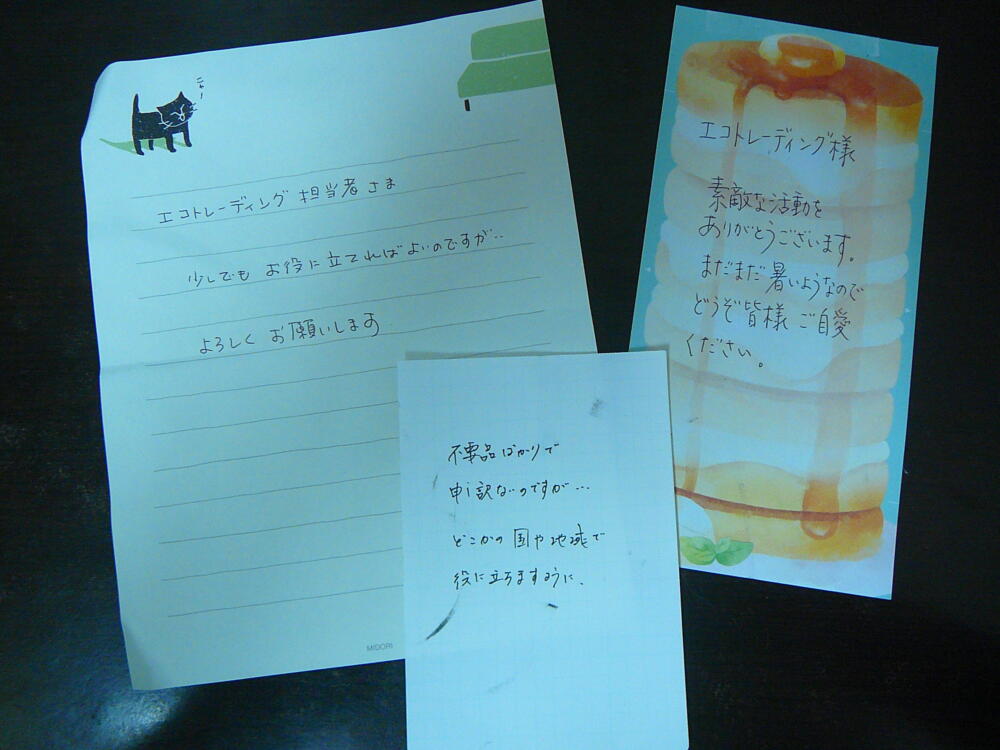 ニャー
エコトレーディング 担当者さま
少しでも お役に立てればよいのですが..
よろしく お願いします
MIDORI
不要品ばかりで
申し訳ないのですが...
どこかの国や地域で
役に立ちますように、
エコトレーディング様
素敵な活動を
ありがとうございます。
まだまだ暑いようなので
どうぞ皆様 ご自愛
ください。